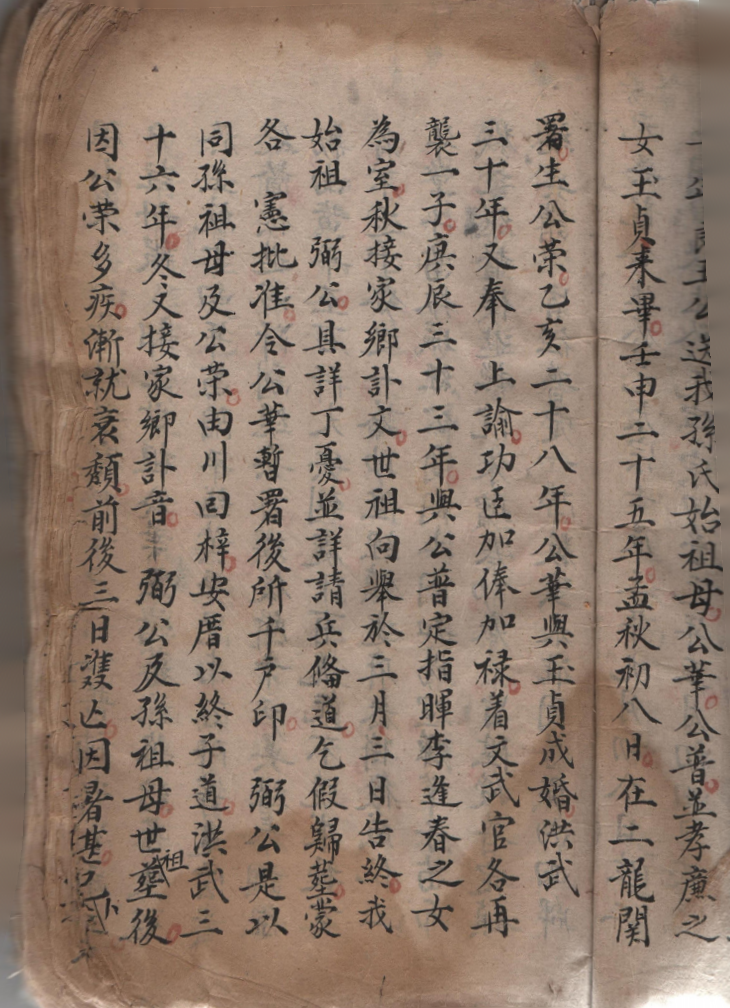 年 王公送我孫氏始祖母公華公普並孝廉之
女玉貞來畢壬申二十五年孟秋初八日在二龍関
署生公荣乙亥二十八年公華與玉貞成婚洪武
三十年又奉 上諭功臣加俸加禄着文武官各再
襲一子庚辰三十三年與公普定指暉李逢春之女
為室秋接家鄉訃文世祖向舉於三月三日告終我
始祖 弼公具詳丁憂並詳請兵俻道乞假歸塟蒙
各 憲批准令公華暫署後所千戸印 弼公是以
同孫祖母及公荣由川囬梓安厝以終子道洪武三
十六年冬又接家鄉訃音 弼公及孫祖母世塟祖後
因公荣多疾漸就衰頽前後三日雙亾因暑甚